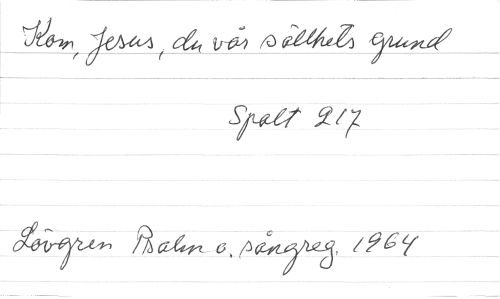 Kom, Jesus, du vår sällhets grund
Spalt 217
Lövgren Psalm o. sångreg. 1964